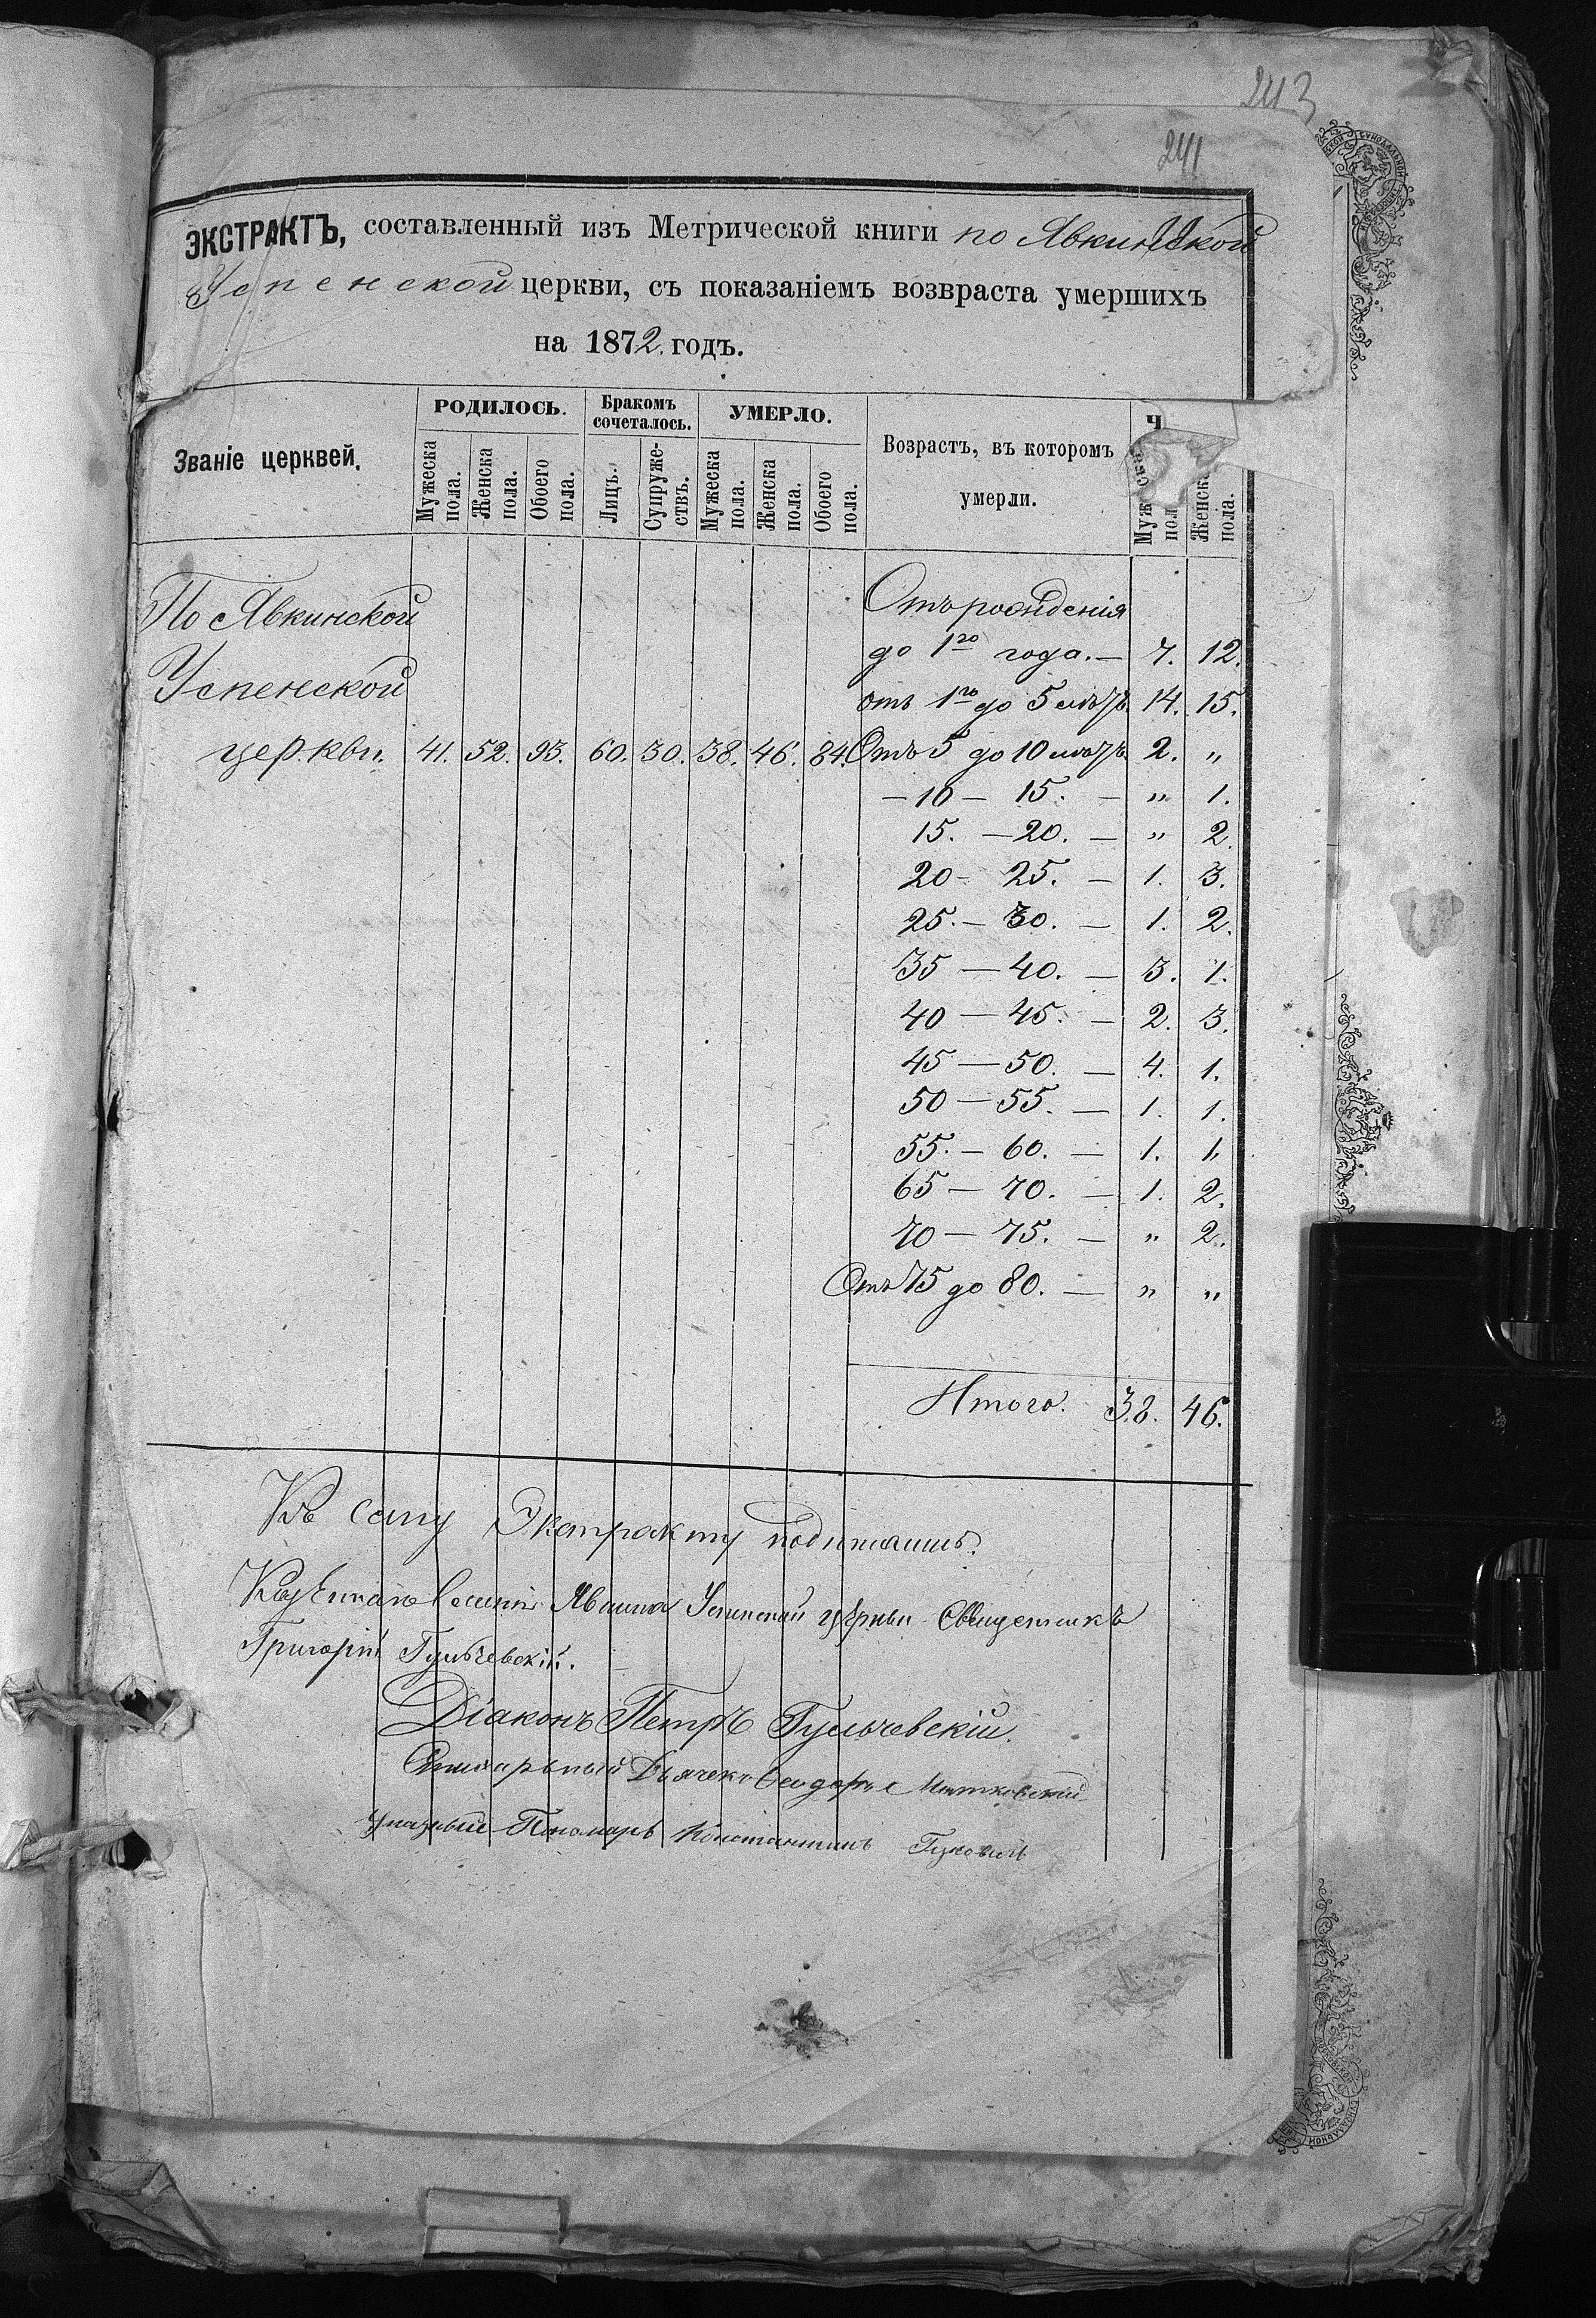 243
241
ЭКСТРАКТЪ, составленный изъ Метрической книги по Явкинской
Успенской церкви, съ показаніемъ возвраста умершихъ
на 1872. годъ.
Званіе церквей.
РОДИЛОСЬ.
Бракомъ сочеталось.
УМЕРЛО.
Возрастъ, въ которомъ умерли.
Ч
Мужеска пола.
Женска пола.
Обоего пола.
Лицъ.
Супружествъ.
Мужеска пола.
Женска пола.
Обоего пола.
Муж ска пол
Женска пола.
По Явкинской
Успенской
церкви. 41. 52. 93. 60. 30. 38. 46. 84.
Отъ рожденія
до 1го года. — 7. 12.
отъ 1го до 5 лѣтъ. 14. 15.
Отъ 5 до 10 лѣтъ. 2. "
— 10 — 15. — " 1.
15. — 20. — " 2.
20 - 25. — 1. 3.
25. — 30. — 1. 2.
35 — 40. — 3. 1.
40 — 45. — 2. 3.
45 — 50. — 4. 1.
50 — 55. — 1. 1.
55. — 60. — 1. 1.
65 — 70. — 1. 2.
70 — 75. — " 2.
Отъ 75 до 80. — " "
Итого. 38. 46.
Къ сему Экстракту
Успенской церкви Священникъ
Григорій Гульчевскій.
Діаконъ Петръ Гульчевскій.
Стихарный Дьячекъ Ѳеодоръ
Указный Пономарь Константинъ